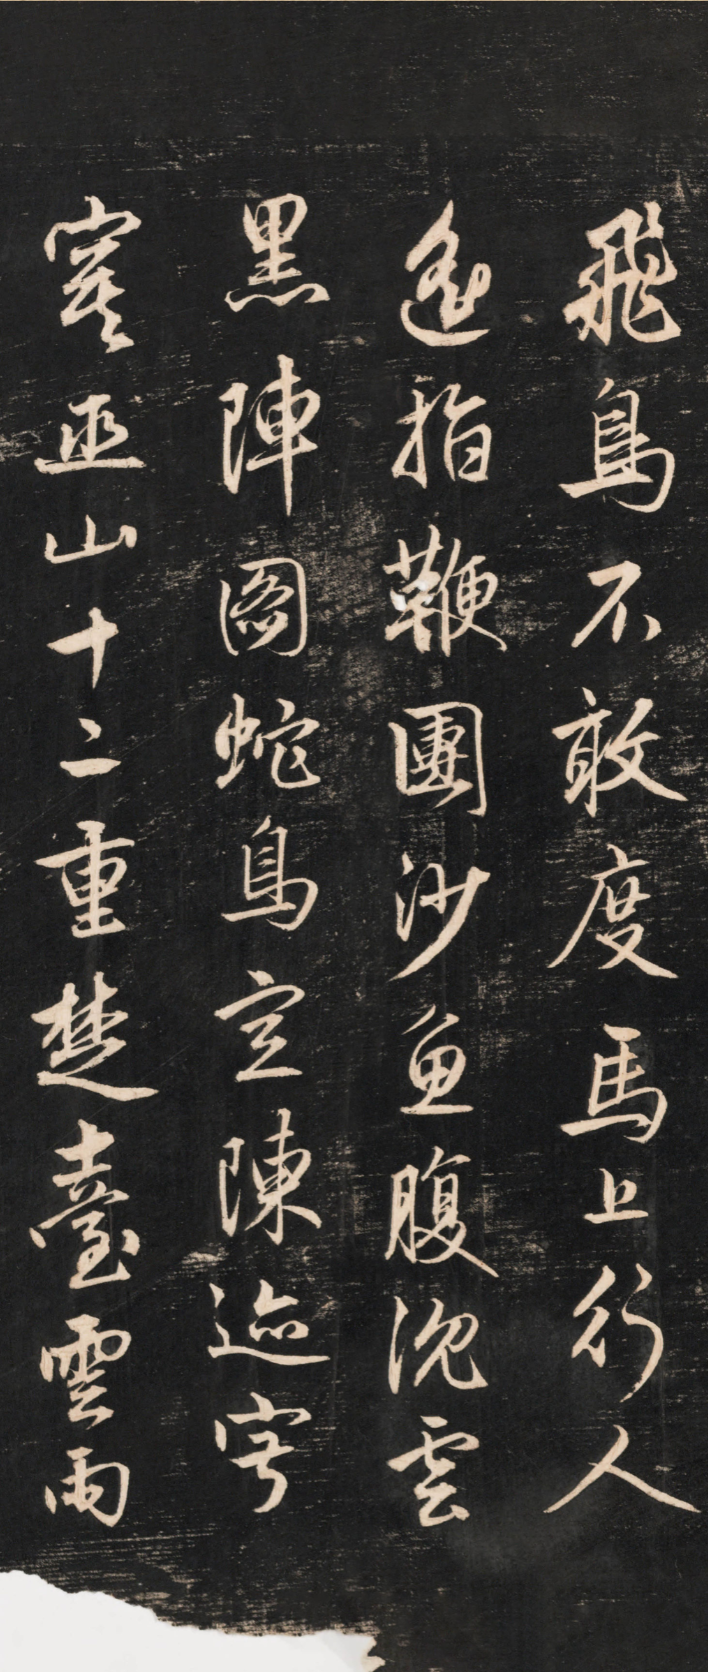 飛鳥不敢度馬上行人
遙指鞭團沙魚腹沈雲
黑陣圖蛇鳥空陳迹寂
寞巫山十二重楚臺雲雨